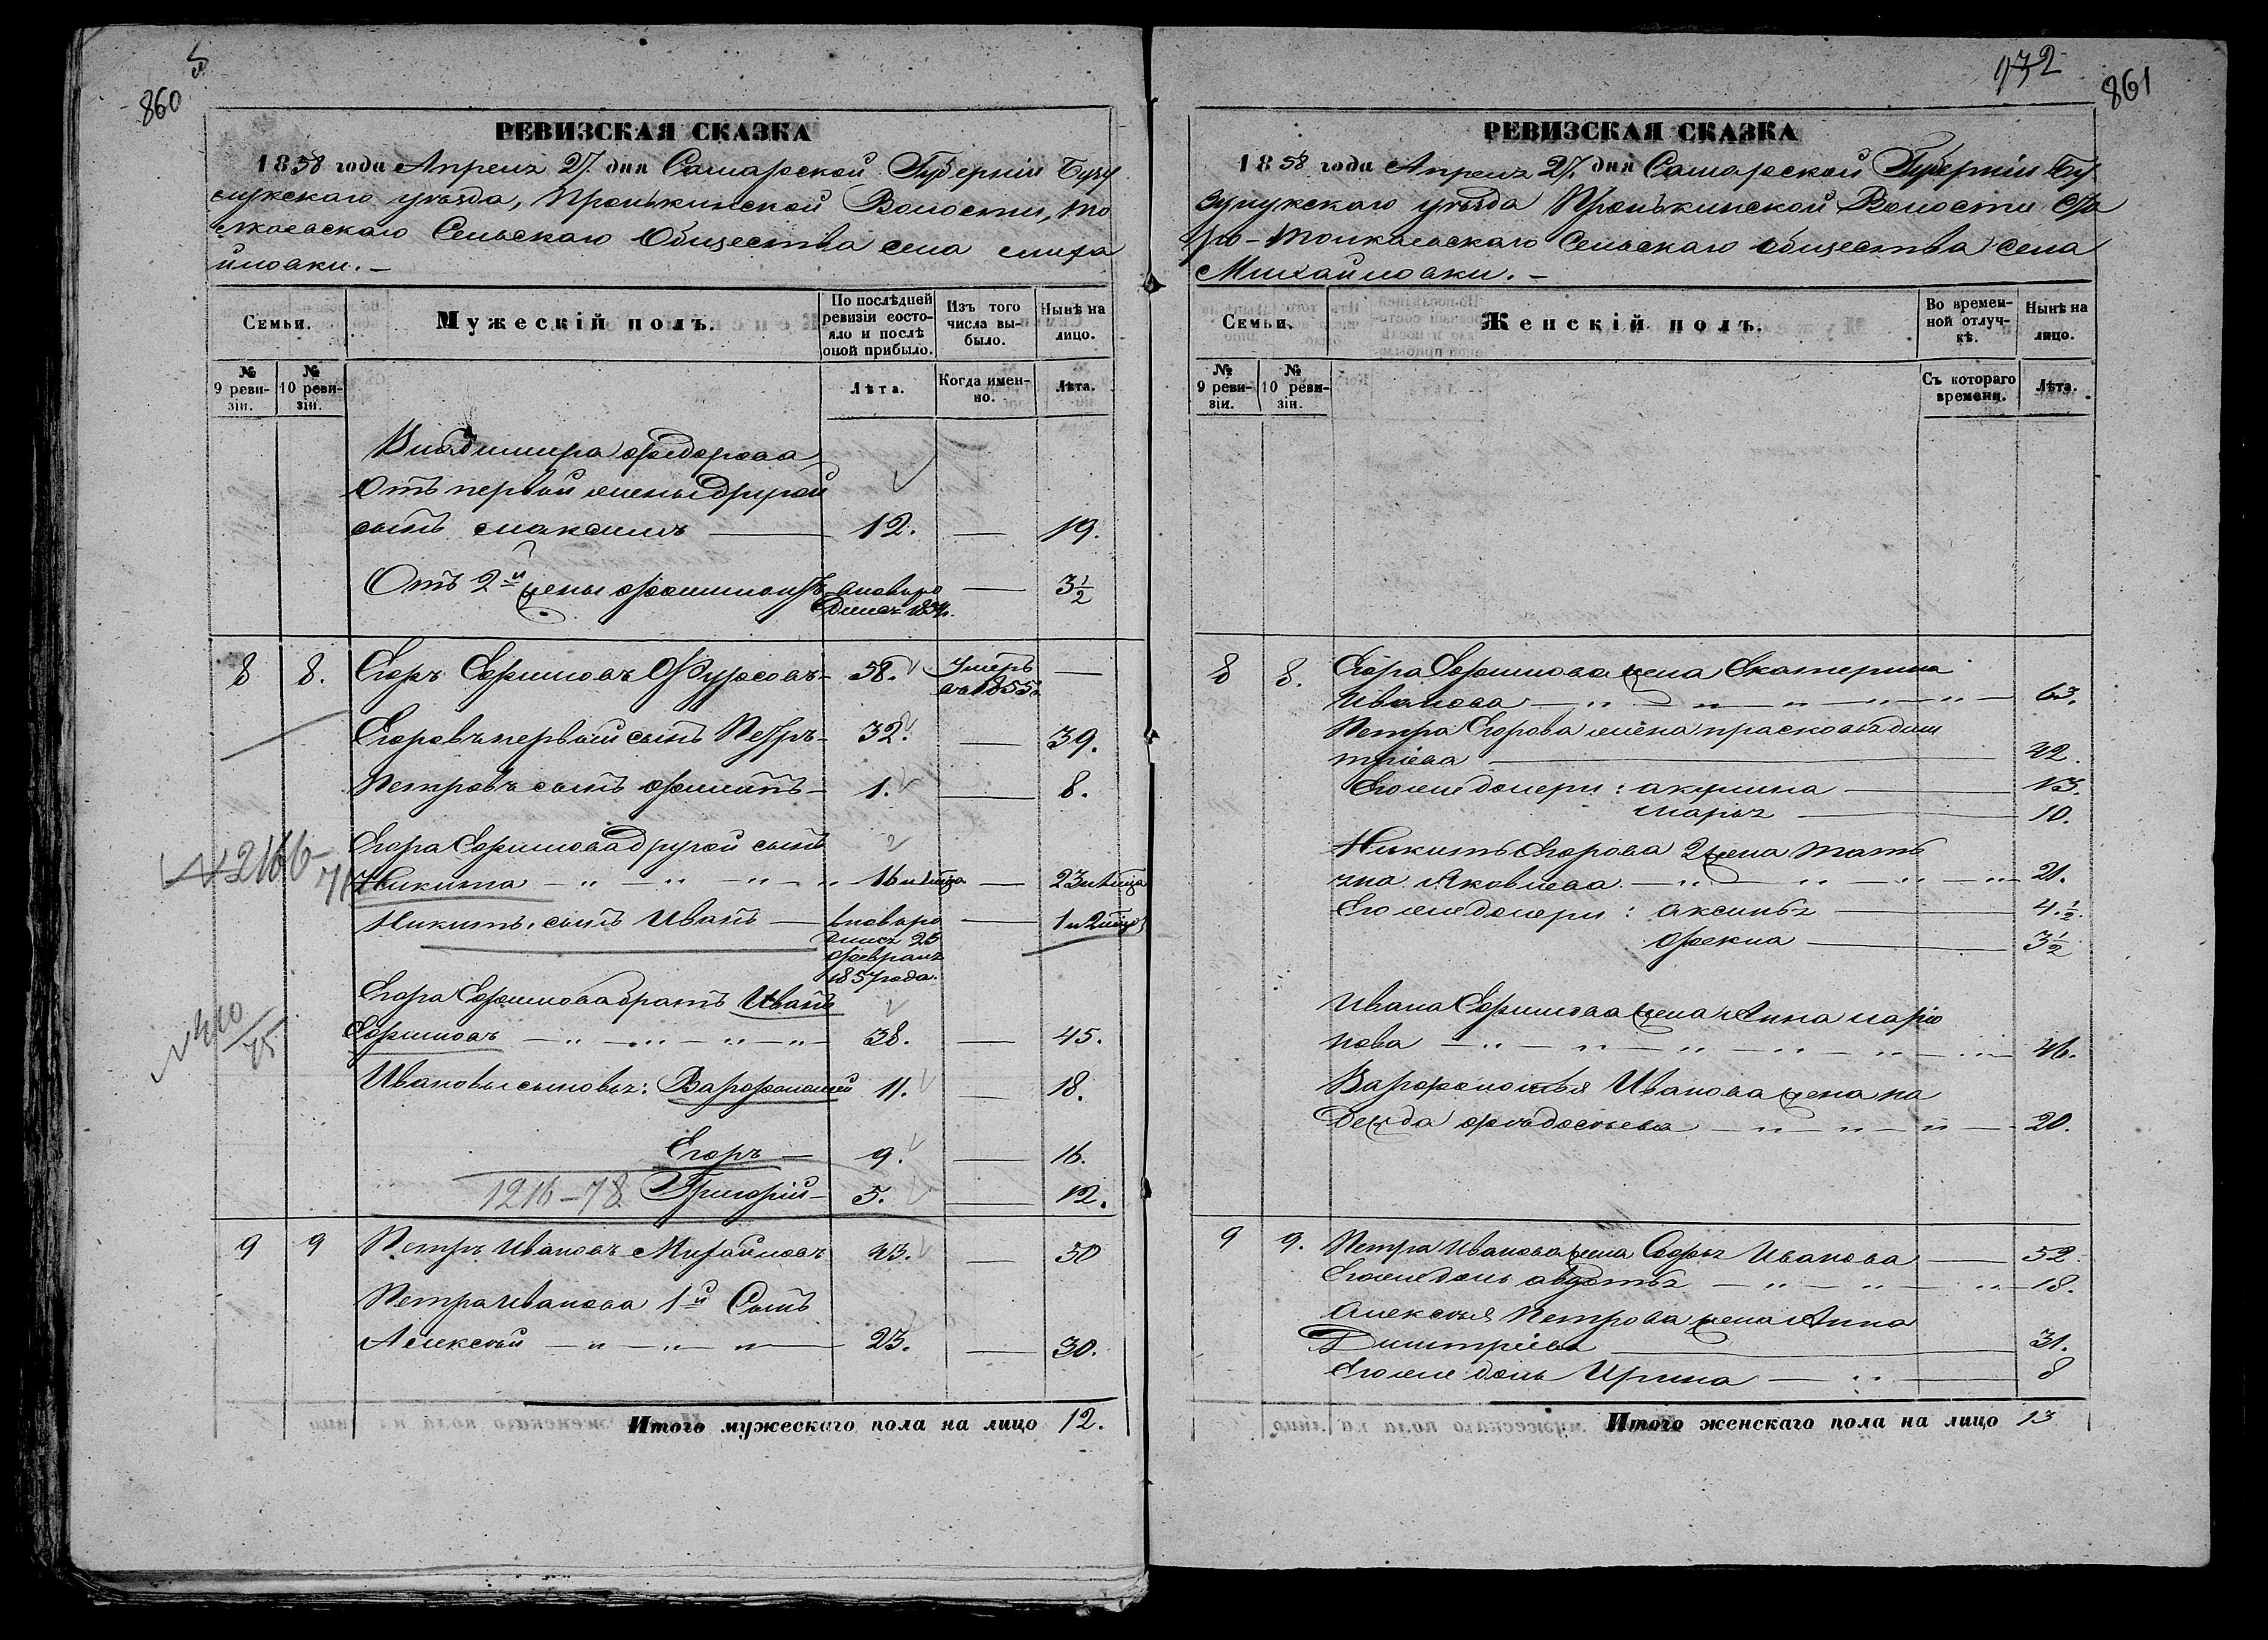 5
860
РЕВИЗСКАЯ СКАЗКА
1858 года Апреля 27 дня Самарской Губерніи Бузу
лукскаго уезда, Пронькинской Волости, То
Сельскаго Общества села Миха
йловки. –
Семьи.
Мужескій полъ.
По послѣдней ревизіи состояло и послѣ оной прибыло.
Изъ того числа выбыло.
Нынѣ на лицо.
№ 9 ревизіи.
№ 10 ревизіи.
Лѣта.
Когда именно.
Лѣта.
Владимера Федорова
Отъ первой жены другой
сынъ Максимъ — 12. — 19.
Отъ 2й жены вновьро — 3½
дился 1854.
8 8. Егоръ Ефимовъ Фурсовъ - 58. Умеръ —
въ 1855.
Егоровъ первый сынъ Петръ - 32. — 39.
Петровъ сынъ — 1. — 8.
Егора Ефимова другой сынъ
№ 2166-71
Никита — " — " — " — " 16 — 23
Никиты сынъ Иванъ — вновьро — 1 и 2
дился 25
февраля
1857 года.
Егора Ефимова братъ Иванъ
Ефимовъ — " — " — " — " — 38. — 45.
Ивановы сыновья: Варфоломей 11. — 18.
Егоръ — 9. — 16.
1216-78 Григорій - 5. — 12.
9 9 Петръ Ивановъ Михайловъ 43. — 50
Петра Иванова 1й Сынъ
Алексѣй — " — " — " — 23. — 30.
Итого мужескаго пола на лицо 12.
932
861
РЕВИЗСКАЯ СКАЗКА
1858 года Апреля 27 дня Самарской Губерніи Бу
зулукскаго уезда Пронькинской Волости Ста
ро- Сельскаго Общества села
Михайловки. –
Семьи.
Женскій полъ.
Во временной отлучкѣ.
Нынѣ на лицо.
№ 9 ревизіи.
№ 10 ревизіи.
Съ котораго времени.
Лѣта.
8 8. Егора Ефимова жена Екатерина
Иванова — " — " — " — " — " — 63.
Петра Егорова жена Прасковья Дми
тріева — 42.
Его же дочери: Акулина — 13.
Марья — 10.
Никиты Егорова 2 жена Тать
яна Яковлева — " — " — " — " 21.
Его же дочери: Аксинья — 4.½.
Фекла — 3½
Ивана Ефимова жена Анна Ларіо
нова — " — " — " — " — " — " — 46.
Варфоломея Иванова жена На
дежда Федосѣева — " — " — " — 20.
9 9. Петра Иванова жена Софья Иванова — 52.
Его же дочь Авдотья — " — " — " — 18.
Алексѣя Петрова жена Анна
Дмитріева — 31.
Его же дочь Ирина — " — 8
Итого женскаго пола на лицо 13